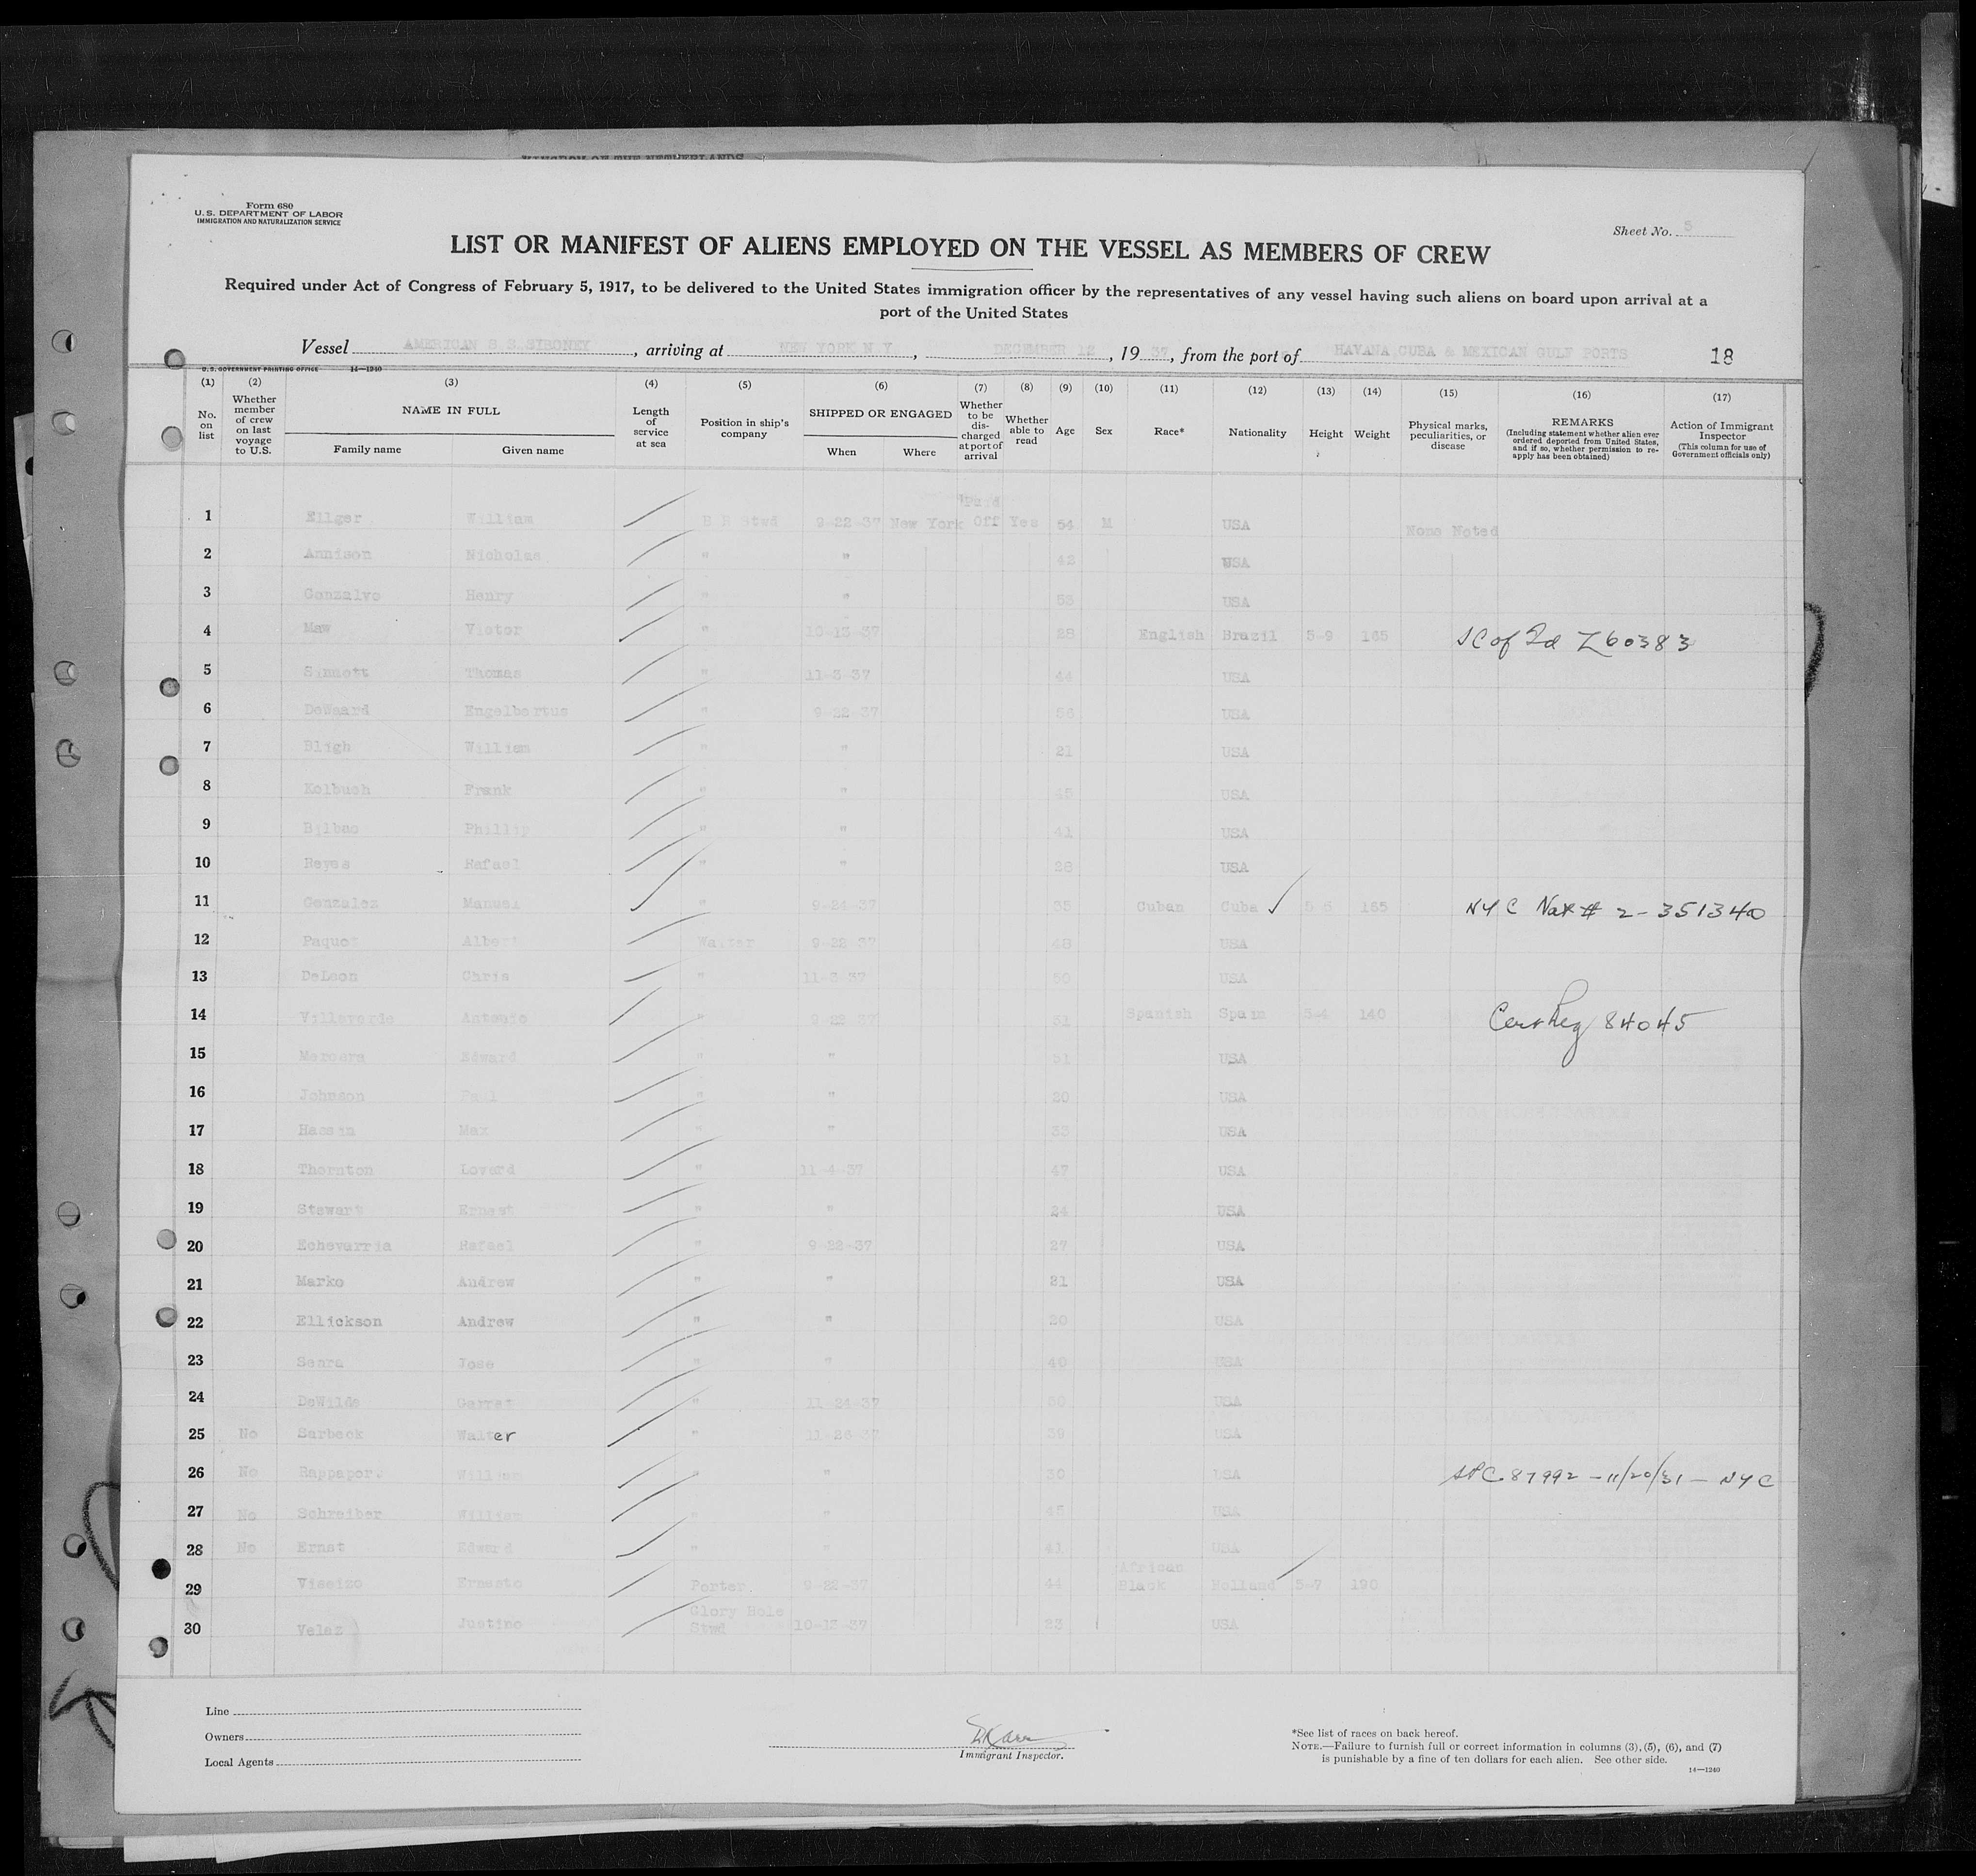 KINGDOM OF THE NETHERLANDS
Form 680
U. S. DEPARTMENT OF LABOR
IMMIGRATION AND NATURALIZATION SERVICE
Sheet No. 5
LIST OR MANIFEST OF ALIENS EMPLOYED ON THE VESSEL AS MEMBERS OF CREW
Required under Act of Congress of February 5, 1917, to be delivered to the United States immigration officer by the representatives of any vessel having such aliens on board upon arrival at a
port of the United States
Vessel AMERICAN S S SIBONEY, arriving at NEW YORK N Y, DECEMBER 12, 19 37, from the port of HAVANA CUBA & MEXICAN GULF PORTS 18
U. S. GOVERNMENT PRINTING OFFICE 14—1240
(1) (2) (3) (4) (5) (6) (7) (8) (9) (10) (11) (12) (13) (14) (15) (16) (17)
No. on list
Whether member of crew on last voyage to U.S.
NAME IN FULL
Family name Given name
Length of service at sea
Position in ship's company
SHIPPED OR ENGAGED
When Where
Whether to be discharged at port of arrival
Whether able to read
Age Sex Race* Nationality Height Weight
Physical marks, peculiarities, or disease
REMARKS
(Including statement whether alien ever ordered deported from United States, and if so, whether permission to re-apply has been obtained)
Action of Immigrant Inspector
(This column for use of Government officials only)
1 Ellger William B R Stwd 9-22-37 New York Paid Off Yes 54 M USA None Noted
2 Annison Nicholas " " 42 USA
3 Gonzalvo Henry " " 53 USA
4 Maw Victor " 10-13-37 28 English Brazil 5-9 165 SC of Id Z60383
5 Sinnott Thomas " 11-3-37 44 USA
6 DeWaard Engelbertus " 9-22-37 56 USA
7 Bligh William " " 21 USA
8 Kolbush Frank " " 45 USA
9 Bilbao Phillip " " 41 USA
10 Reyes Rafael " " 28 USA
11 Gonzalez Manuel " 9-24-37 35 Cuban Cuba 5-6 165 NYC Nat # 2-351340
12 Paquot Albert Waiter 9-22-37 48 USA
13 DeLeon Chris " 11-3-37 50 USA
14 Villaverde Antonio " 9-22-37 31 Spanish Spain 5-4 140 Cert Reg 84045
15 Mercera Edward " " 51 USA
16 Johnson Paul " " 20 USA
17 Hassin Max " " 33 USA
18 Thornton Lovard " 11-4-37 47 USA
19 Stewart Ernest " " 24 USA
20 Echevarria Rafael " 9-22-37 27 USA
21 Marko Andrew " " 21 USA
22 Ellickson Andrew " " 20 USA
23 Senra Jose " " 40 USA
24 DeWilde Garret " 11-24-37 50 USA
25 No Sarbeck Walter " 11-26-37 39 USA
26 No Rappaport William " " 30 USA 87992 - 11/20/31 - NYC
27 No Schreiber William " " 45 USA
28 No Ernst Edward " " 41 USA
29 Viseizo Ernesto Porter 9-22-37 44 African Black Holland 5-7 190
30 Velez Justino Glory Hole Stwd 10-13-37 23 USA
Line
Owners
Local Agents
Immigrant Inspector.
*See list of races on back hereof.
NOTE.—Failure to furnish full or correct information in columns (3), (5), (6), and (7)
is punishable by a fine of ten dollars for each alien. See other side.
14—1240